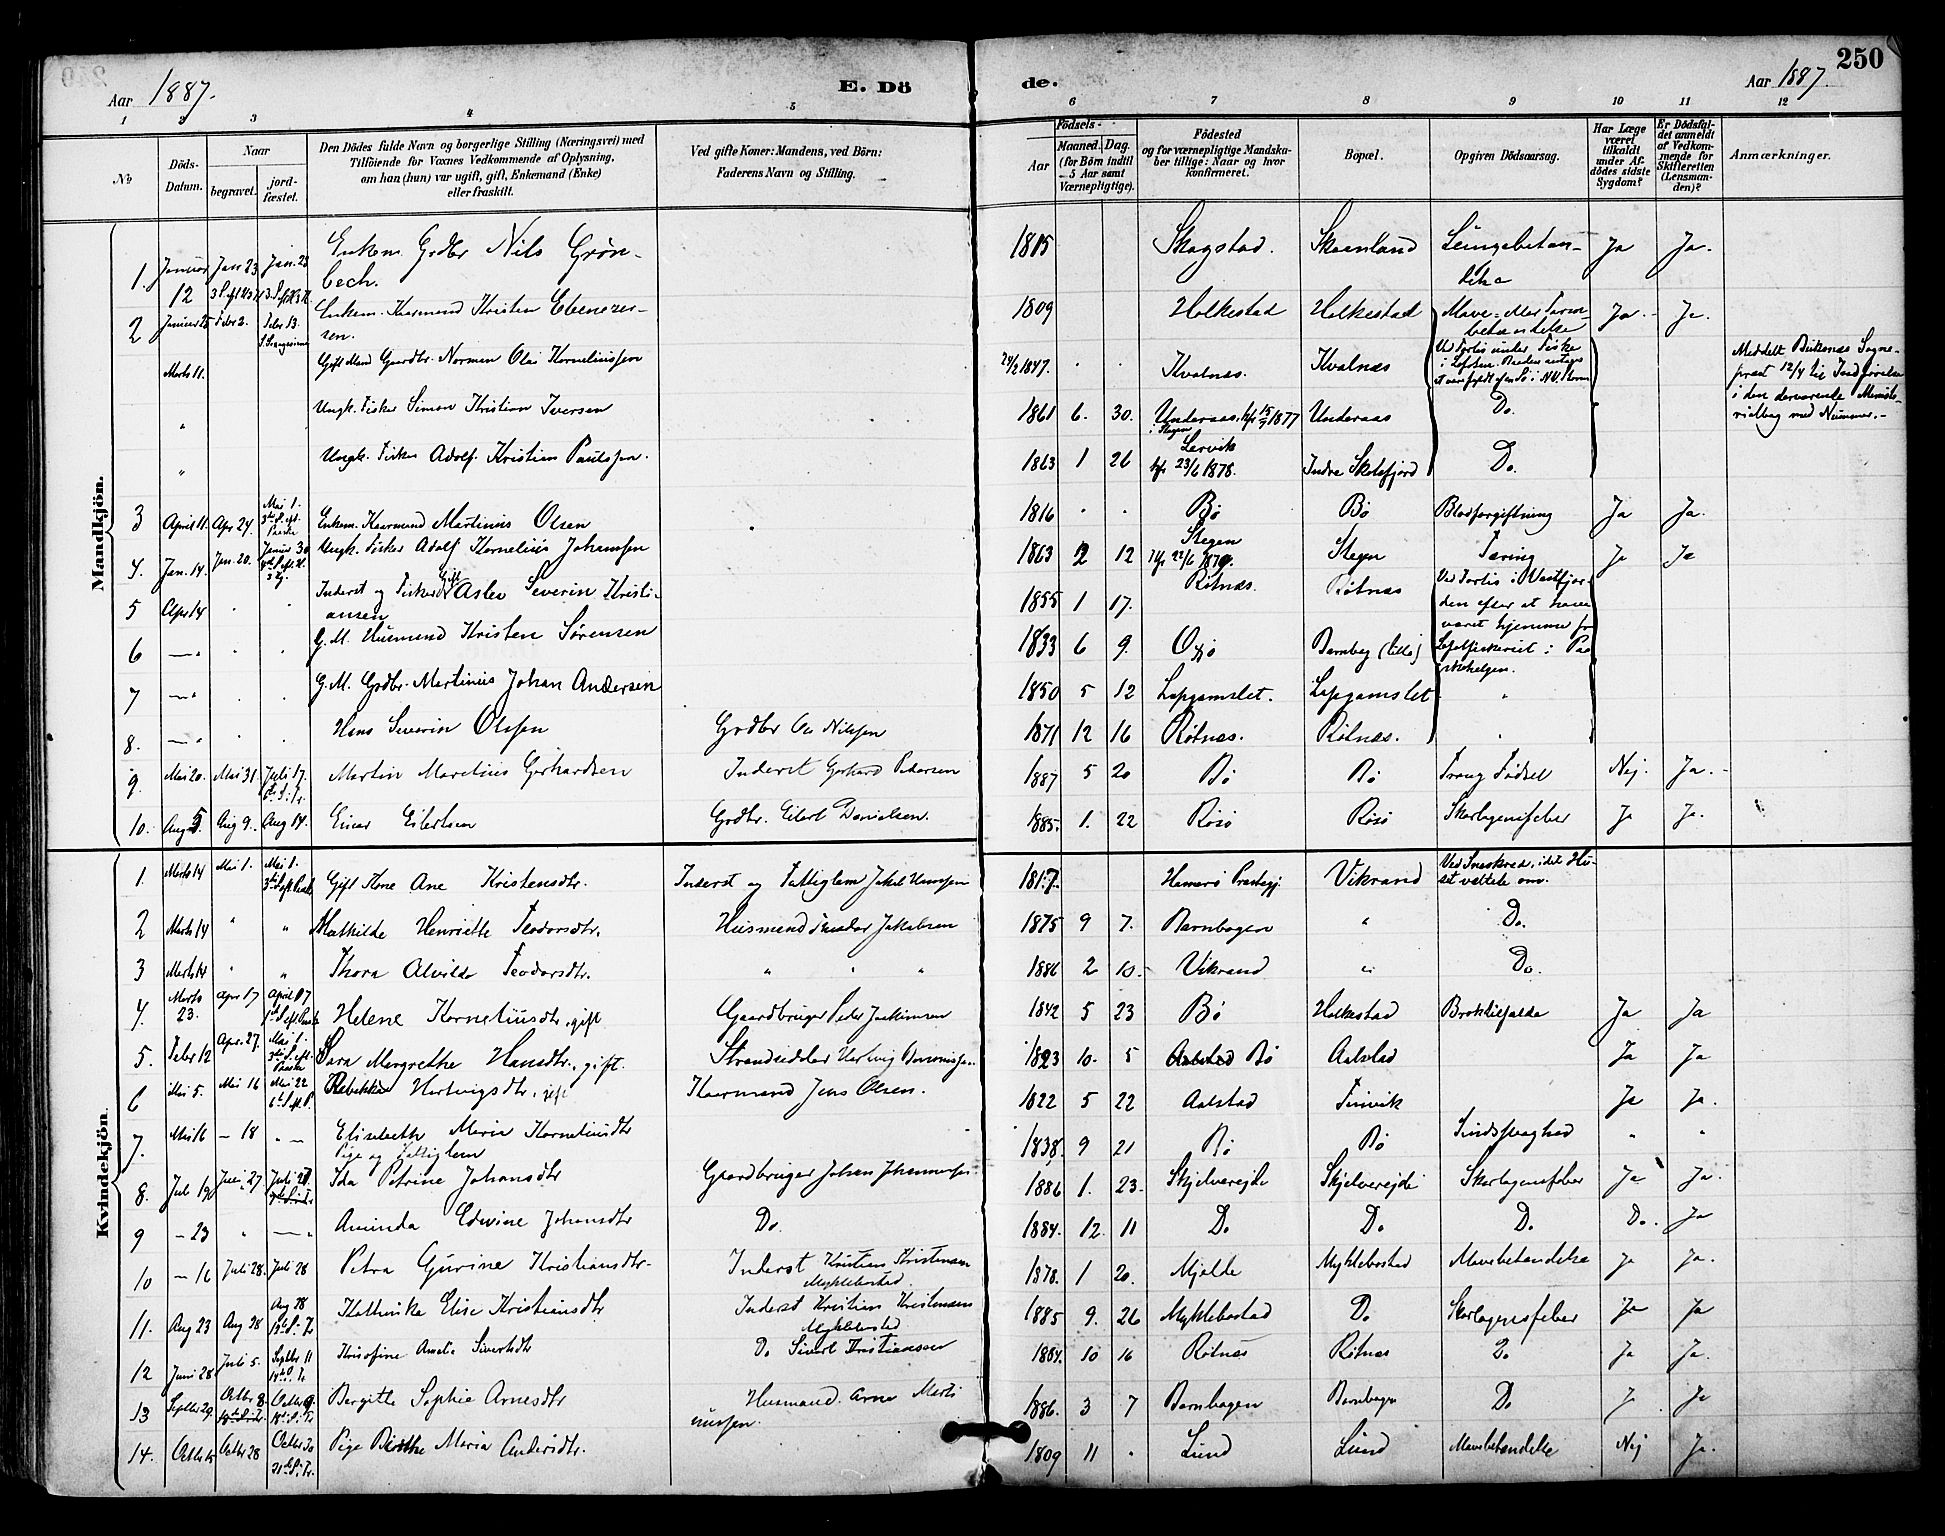 250
Aar 1887.
E. Dö
de.
Aar 1887.
1 2 3 4 5 6 7 8 9 10 11 12
№
Döds-Datum.
Naar
begravet.
jord-fæstet.
Den Dödes fulde Navn og borgerlige Stilling (Næringsvei) med
Tilföiende for Voxnes Vedkommende af Oplysning,
om han (hun) var ugift, gift, Enkemand (Enke)
eller fraskilt.
Ved gifte Koner: Mandens, ved Börn:
Faderens Navn og Stilling.
Födsels-
Aar
Maaned. Dag.
(for Börn indtil
5 Aar samt
Værnepligtige).
Födested
og for værnepligtige Mandska-
ber tillige: Naar og hvor
konfirmeret.
Bopæl.
Opgiven Dödsaarsag.
Har Læge
været
tilkaldt
under Af-
dödes sidste
Sygdom?
Er Dödsfal-
det anmeldt
af Vedkom-
mende for
Skifteretten
(Lensman-
den)?
Anmærkninger.
Mandkjön.
1. Januar 12 Jan 23 Jan. 23 Enkem. Grdbr Nils Grøn-
bech. 1815 Skagstad. Skaanland Lungebetæn-
delse Ja Ja.
2 Januar 25 Febr 2. Febr 13. Enkem. Kaarmand Kristen Ebenezer-
sen. 1809 Holkestad Holkestad Mave- eller Tarm
betændelse Ja. Ja.
Marts 11. Gift Mand Gaardbr. Norman Olai Korneliussen 24/2 1847. Kvalnæs. Kvalnæs Ved Forlis under Fiske
i Lofoten.
Meddelt Sogne-
præst 12/4 til Indførelse
i den derværende Ministe-
rialbog med Nummer.
" Ungk. Fisker Simon Kristian Iversen 1861 6. 30. Underaas, kfr 15/7 1877
i Stegen Underaas Do.
" Ungk. Fisker Adolf Kristian Paulssen. 1863 1 26 Lervik
kfr 23/6 1878. Indre Skotsfjord Do.
3 April 11. Apr 24. Mai 1.
3die S. eft.
Paaske Enkem. Kaarmand Martinus Olsen 1816 Bø Bø Blodforgiftning Ja Ja.
4. Jan. 14. Jan. 20. Januar 30 Ungk. Fisker Adolf Kornelius Johanssen 1863 2 12 Stegen
kfr 22/6 1879. Stegen Tæring Ja Ja
5 Apr 14 Inderst og Fisker Gift Aslev Severin Kristi-
ansen 1855 1 17. Røtnæs. Røtnæs Ved Forlis i Vestfjor-
den efter at have
været hjemme fra
Lofotfiskeriet i Paa-
skehelgen.
6 —"— G. M. Husmand Kristen Sørensen 1833 6 9. Barnbog (lille)
7 —"— G. M. Grdbr. Martinus Johan Andersen 1850 5 12 Lapgamslet. Lapgamslet "
8. —"— Hans Severin Olssen Grdbr Ole Nilssen 1871 12 16 Røtnæs. Røtnæs. "
9. Mai 20. Mai 31. Juli 17. Martin Maretius Gerhardsen Inderst Gerhard Pedersen 1887 5 20 Bø Bø Trang Fødsel Nej. Ja.
10. Aug 5. Aug 9. Aug 14. Einar Eilertsen Grdbr. Eilert Danielsen. 1885. 1. 22 Røsø Røsø Skarlagensfeber Ja Ja.
Kvindekjön.
1. Marts 14 Mai 1. Mai 1.
3die S. eft Paaske Gift Kone Ane Kristensdtr. Inderst og Fattiglem Jakob Hanssen 1817. Hamarø Præstegj. Vikrand Ved Sneskred, idet Hu-
set væltede om.
2 Marts 14 " " Mathilde Henriette Teodorsdtr. Husmand Teodor Jakobsen 1875 9 7. Barnbogen " Do.
3 Marts 14 " " Thora Alvilde Teodorsdtr. " " " 1886 2 10. Vikrand " Do.
4. Marts 23. Apr 17 April 17
1ste S. eft Paaske Helene Korneliusdtr., gift Gaardbruger Peder Joakimsen 1842 5 23 Bø Holkestad Broktilfælde Ja Ja
5. Febr 12 Apr. 27. Mai 1.
3die S. eft.
Paaske Sara Margrethe Hansdtr., gift. Strandsidder Hertvig 1823 10. 5 Bø Aalstad Ja Ja
6 Mai 5. Mai 16 Mai 22
6te S. eft P. Rebekka Hartvigsdtr., gift Kaarmand Jens Olsen. 1822 5 22 Aalstad Finvik Ja Ja.
7. Mai 16 — 18 "— Elisabeth Maria Korneliusdtr
Pige og Fattiglem 1838. 9 21 Bø Bø Sindssvaghed " "
8. Juli 19 Juli 27 Juli 27 Ida Petrine Johansdtr Gaardbruger Johan Johannessen 1886 1. 23. Skjelvereide Skjelvereide Skarlagensfeber Ja Ja.
9 — 23 " —"— Aminda Edvine Johansdtr Do. 1884. 12. 11 Do. Do. Do. Do. Ja
10 — 16 Juli 28. Juli 28 Petra Gurine Kristiansdtr. Inderst Kristian Kristensen
Myklebostad. 1878. 1 20. Mjelde Myklebostad Mavebetændelse Ja Ja.
11. Aug 23 Aug 28 Aug 28 Kathinka Elise Kristiansdtr Inderst Kristian Kristensen
Myklebostad 1885 9. 26 Myklebostad Do. Skarlagensfeber Ja Ja
12 Juni 28 Juli 5. Septbr 11 Amalia Sivertsdtr Do. Sivert Kristianssen 1884. 10 16 Røtnæs Røtnæs Do Ja Ja.
13 Septbr 29. Octbr 8 Octbr 9. Bergitte Sophie Arnesdtr Husmand Arne Marti-
nussen. 1886. 3 7 Barnbogen Barnbogen Do Ja Ja
14. Octbr 15 Octbr 28 Octbr 30
21de S. Tr. Pige Birthe Maria Andersdtr. 1809 11 Lund Lund Mavebetændelse Nej Ja.